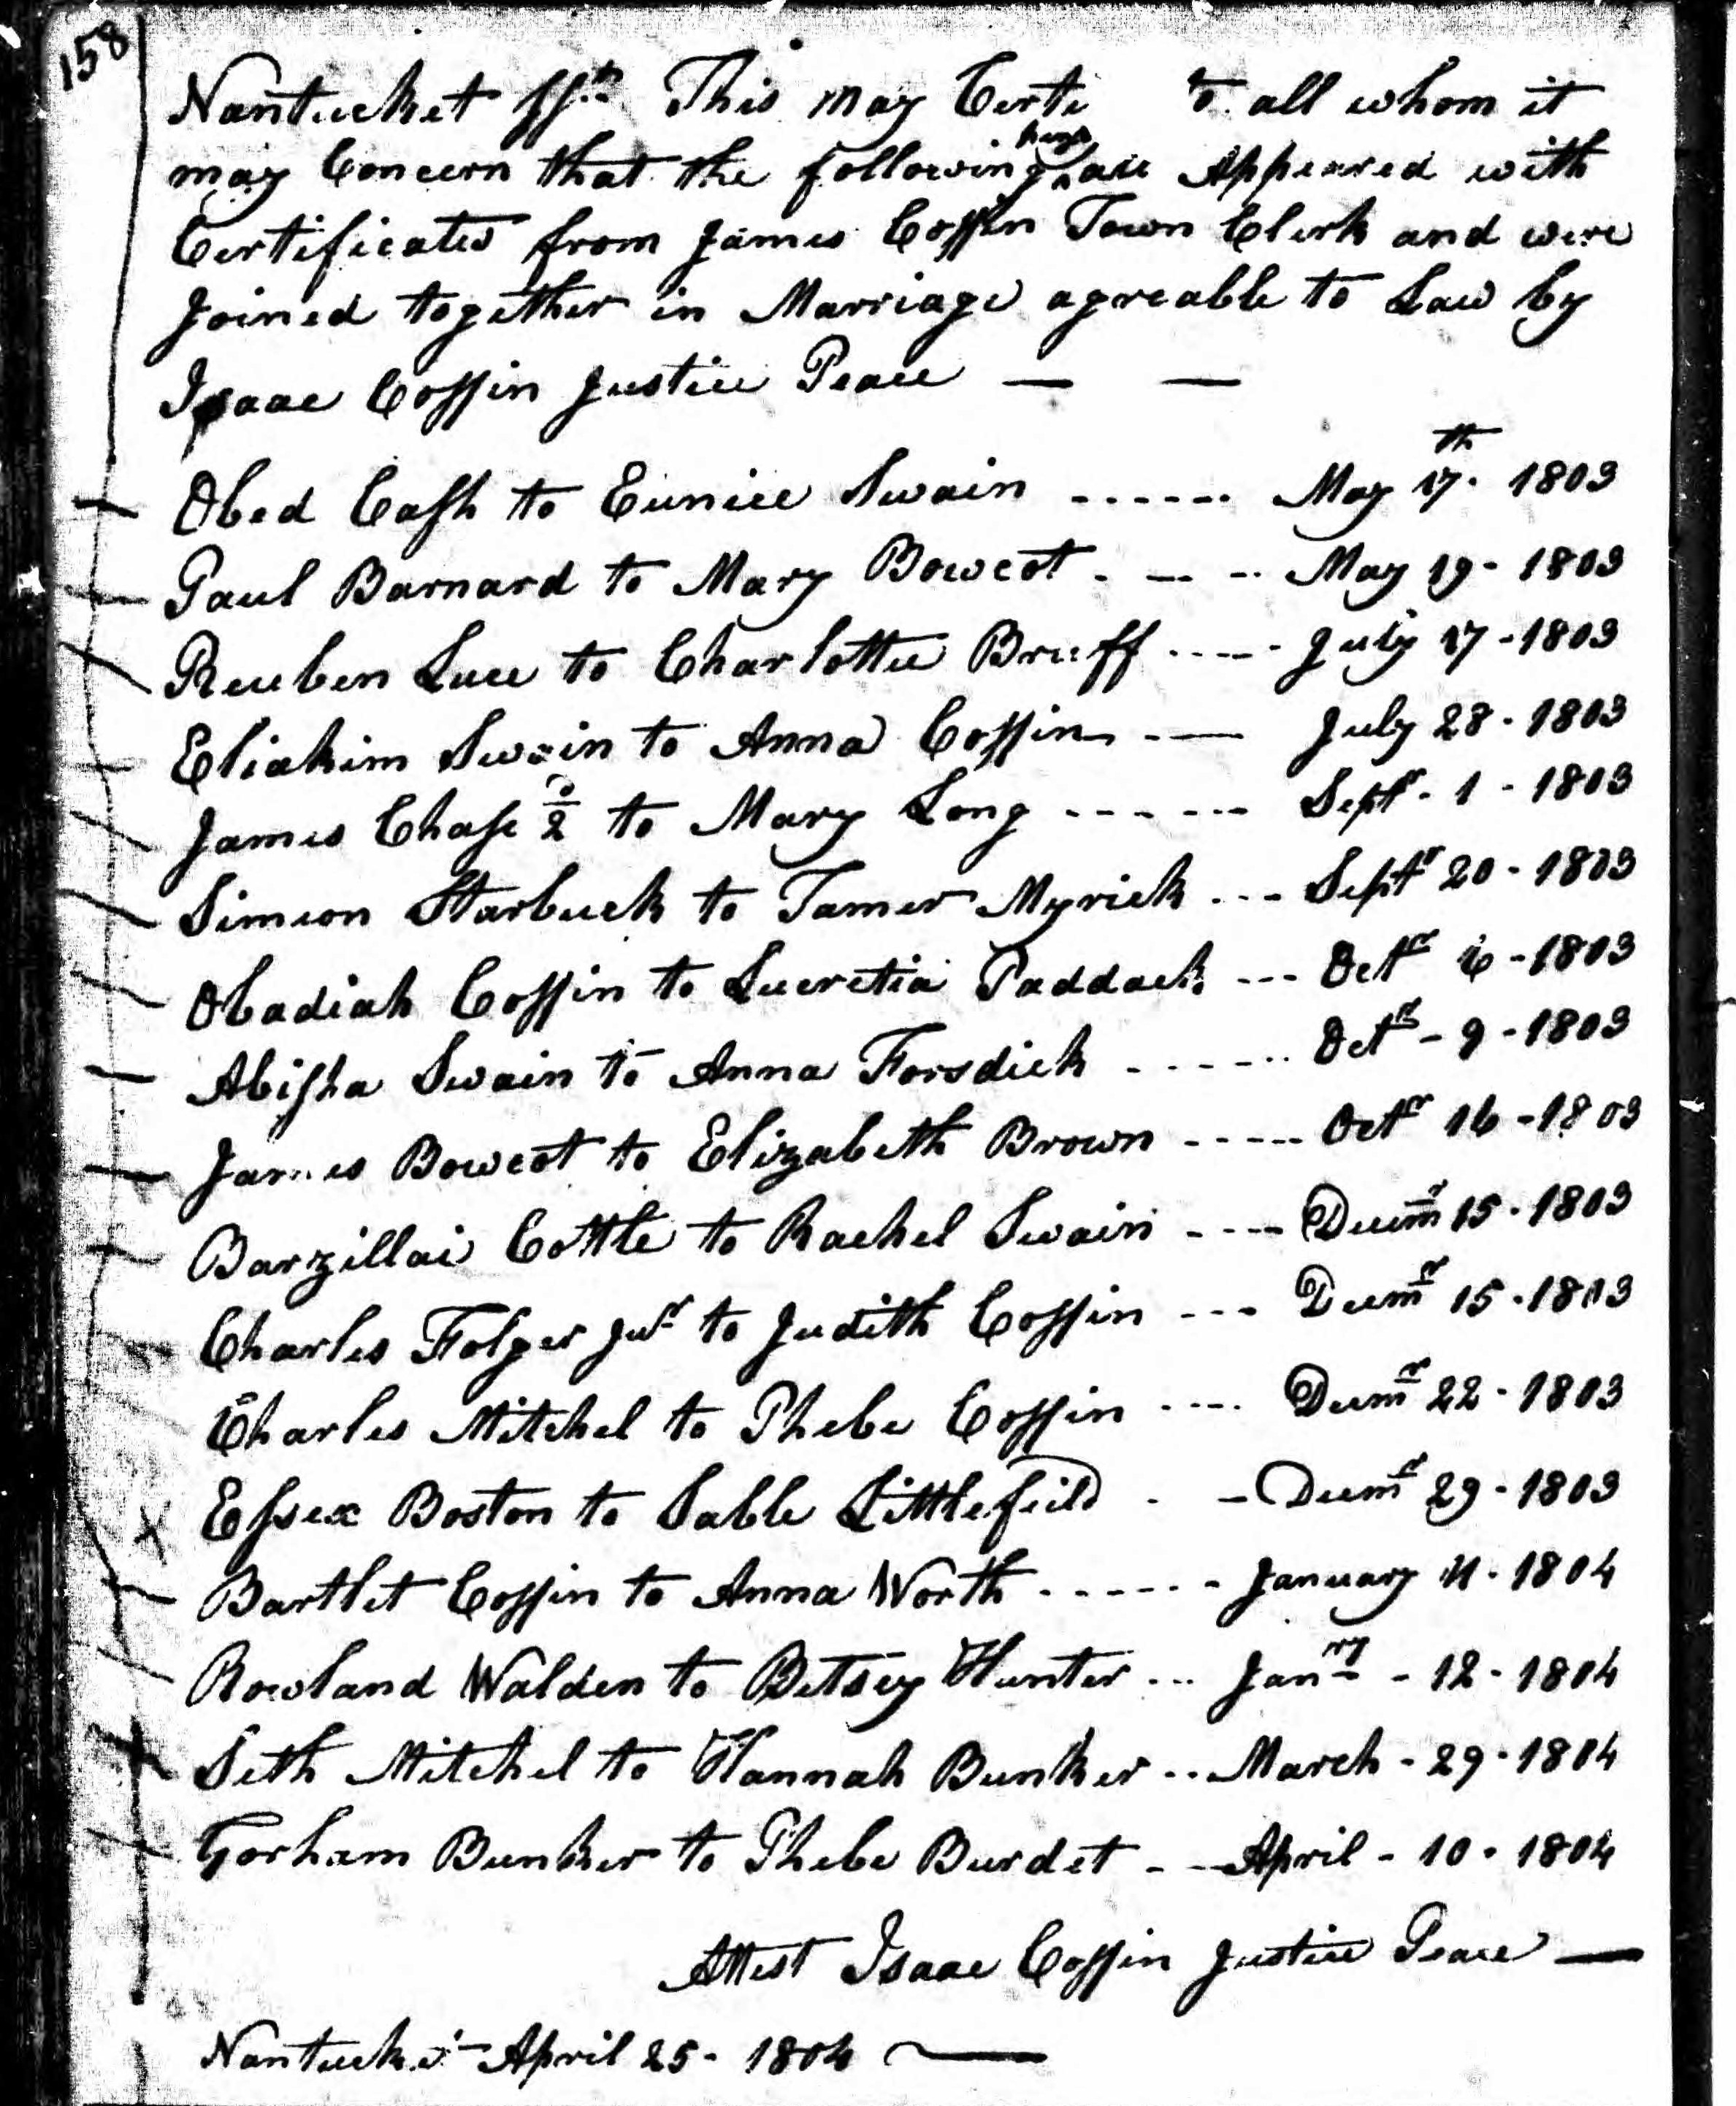 158
Nantucket ss. This may Certi to all whom it
may Concern that the following have Appeared with
Certificates from James Coffin Town Clerk and were
Joined together in Marriage agreable to Law by
Isaac Coffin Justice Peace — —
Obed Cash to Eunice Swain ------ May 17th. 1803
Paul Barnard to Mary Bowcot . — -- May 19 - 1803
Reuben Luce to Charlotte Bruff ----- July 17 - 1803
Eliakim Swain to Anna Coffin -— July 28 - 1803
James Chase 2d to Mary Long ------ Septr - 1 - 1803
Simeon Starbuck to Tamer Myrick --- Septr 20 - 1803
Obadiah Coffin to Lucretia Paddack --- Octr 6 - 1803
Abisha Swain to Anna Forsdick ------ Octr - 9 - 1803
James Bowcot to Elizabeth Brown ----- Octr 16 - 1803
Barzillai Cottle to Rachel Swain ---- Decemr 15 - 1803
Charles Folger Junr to Judith Coffin --- Decemr 15 - 1803
Charles Mitchel to Phebe Coffin ---- Decemr 22 - 1803
Essex Boston to Sable Littlefeild . - Decemr 29 - 1803
Bartlet Coffin to Anna Worth ------ January 11 - 1804
Rowland Walden to Betsey Hunter --- Janry - 12 - 1804
Seth Mitchel to Hannah Bunker -- March - 29 - 1804
Gorham Bunker to Phebe Burdet - -- April - 10 - 1804
Attest Isaac Coffin Justice Peace —
Nantucket April 25 - 1804 —